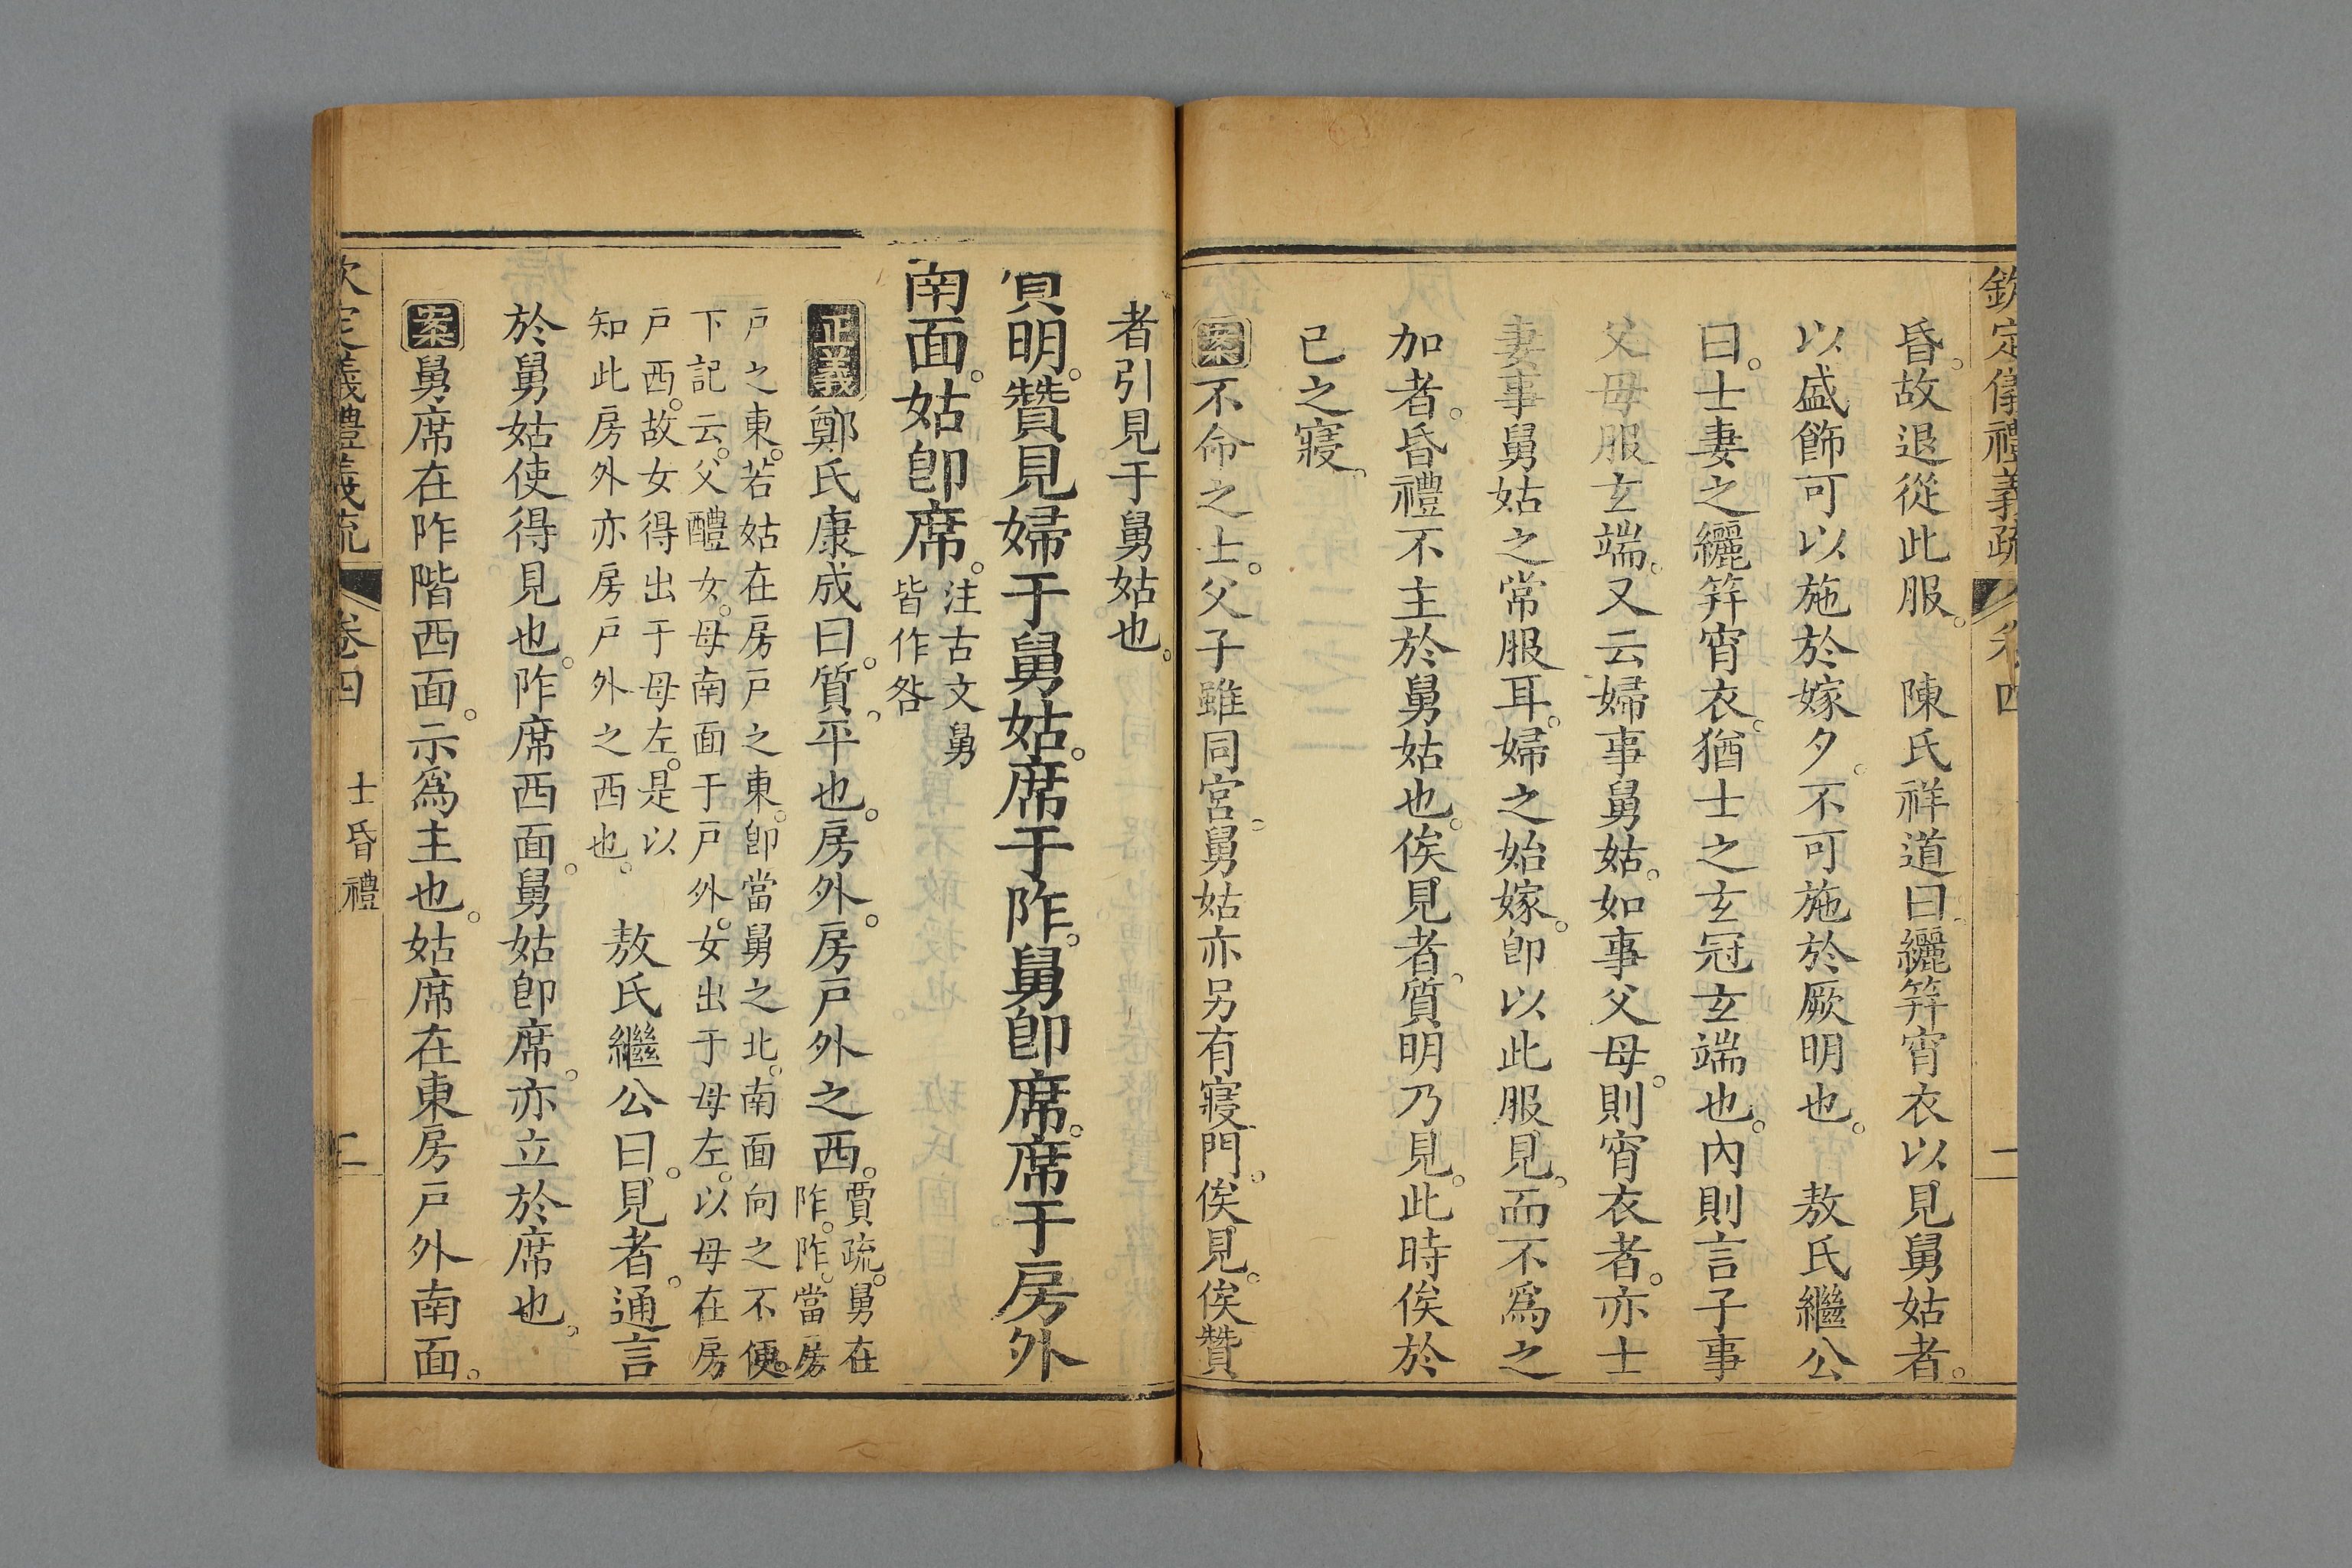 欽定儀禮義疏 卷四 二
昏。故退從此服。 陳氏祥道曰。纚笄宵衣以見舅姑者。
以盛飾可以施於嫁夕。不可施於厥明也。 敖氏繼公
曰。士妻之纚笄宵衣。猶士之玄冠玄端也。內則言子事
父母服玄端。又云婦事舅姑。如事父母。則宵衣者。亦士
妻事舅姑之常服耳。婦之始嫁。卽以此服見。而不爲之
加者。昏禮不主於舅姑也。俟見者。質明乃見。此時俟於
已之寢。
案不命之士。父子雖同宮。舅姑亦另有寢門。俟見。俟贊
者引見于舅姑也。
質明。贊見婦于舅姑。席于阼。舅卽席。席于房外
南面。姑卽席。注古文舅
皆作咎
正義鄭氏康成曰。質。平也。房外。房戶外之西。賈疏。舅在
阼。阼。當房
戶之東。若姑在房戶之東。卽當舅之北。南面向之不便。
下記云。父醴女。母南面于戶外。女出于母左。以母在房
戶西。故女得出于母左。是以
知此房外亦房戶外之西也。 敖氏繼公曰。見者。通言
於舅姑使得見也。阼席西面。舅姑卽席。亦立於席也。
案舅席在阼階西面。示爲主也。姑席在東房戶外南面。
欽定儀禮義疏 卷四 士昏禮 二